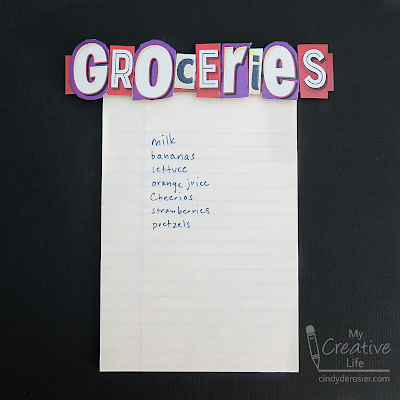 GROCERIES
milk
bananas
lettuce
orange juice
Cheerios
strawberries
pretzels
My
Creative
Life
cindyderosier.com